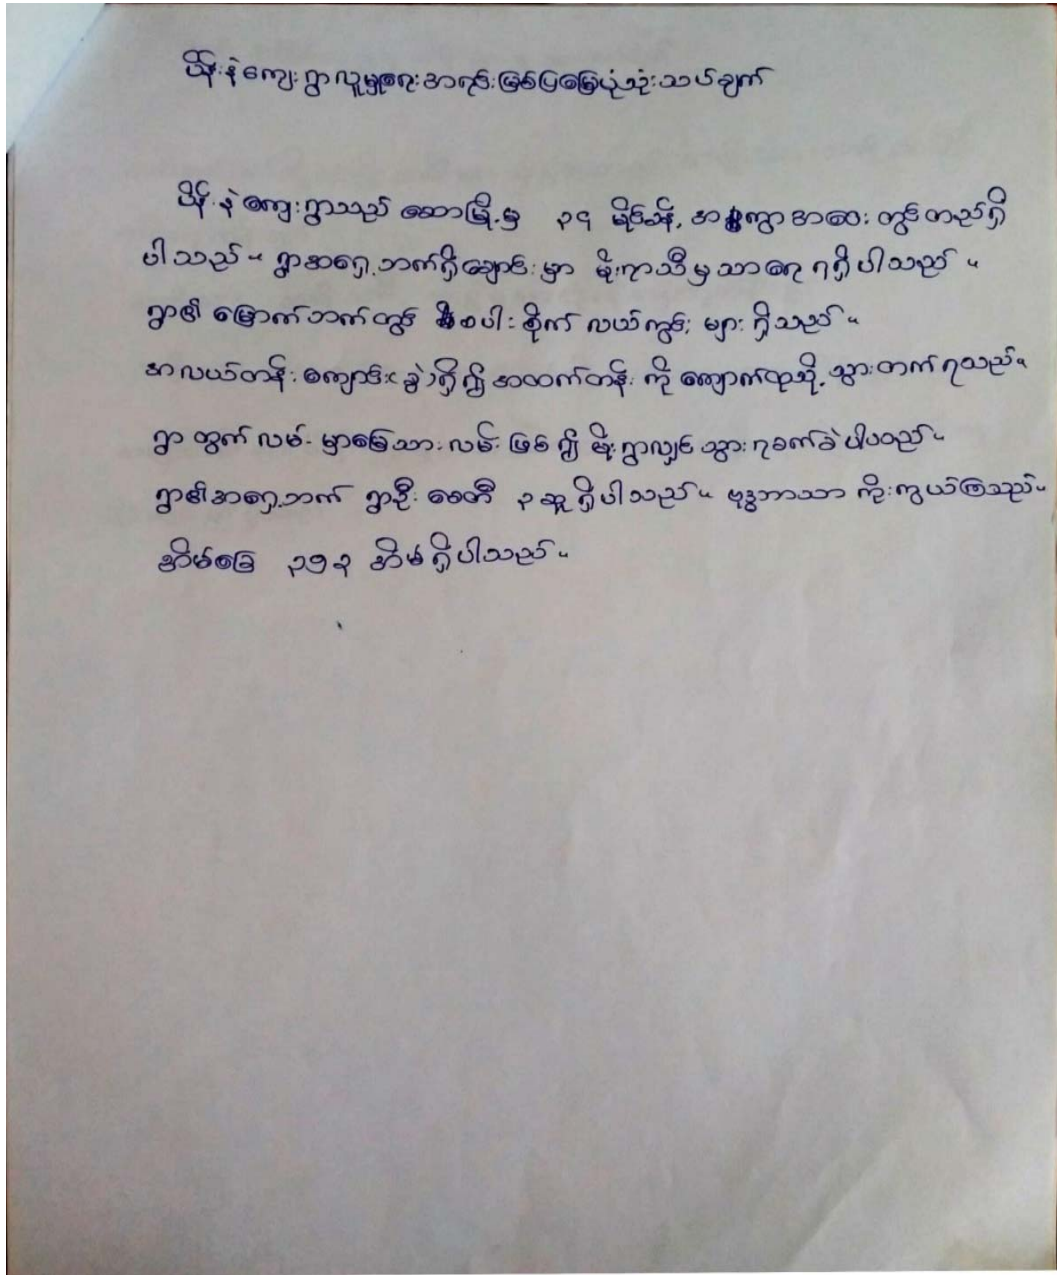 ပိန်းနဲကျေးရွာလူမှုရေးအရင်းမြစ်ပြမြေပုံသုံးသပ်ချက်
ပိန်းနဲကျေးရွာသည် ဆောမြို့မှ ၃၄ မိုင်ခန့် အကွာအဝေးတွင်တည်ရှိ
ပါသည်။ ရွာအရှေ့ဘက်ရှိချောင်းမှာ မိုးရာသီမှသာရေ ရရှိပါသည်။
ရွာ၏ မြောက်ဘက်တွင် စပါးစိုက် လယ်ကွင်းများရှိသည်။
အလယ်တန်းကျောင်း(ခွဲ)ရှိ၍ အထက်တန်းကို ကျောက်ထုသို့သွားတက်ရသည်။
ရွာထွက်လမ်းမှာမြေသားလမ်းဖြစ်၍ မိုးရွာလျှင်သွားရခက်ခဲပါသည်။
ရွာ၏အရှေ့ဘက် ရွာဦးစေတီ ၃ဆူရှိပါသည်။ ဗုဒ္ဓဘာသာ ကိုးကွယ်ကြသည်။
အိမ်ခြေ ၃၅၃ အိမ်ရှိပါသည်။